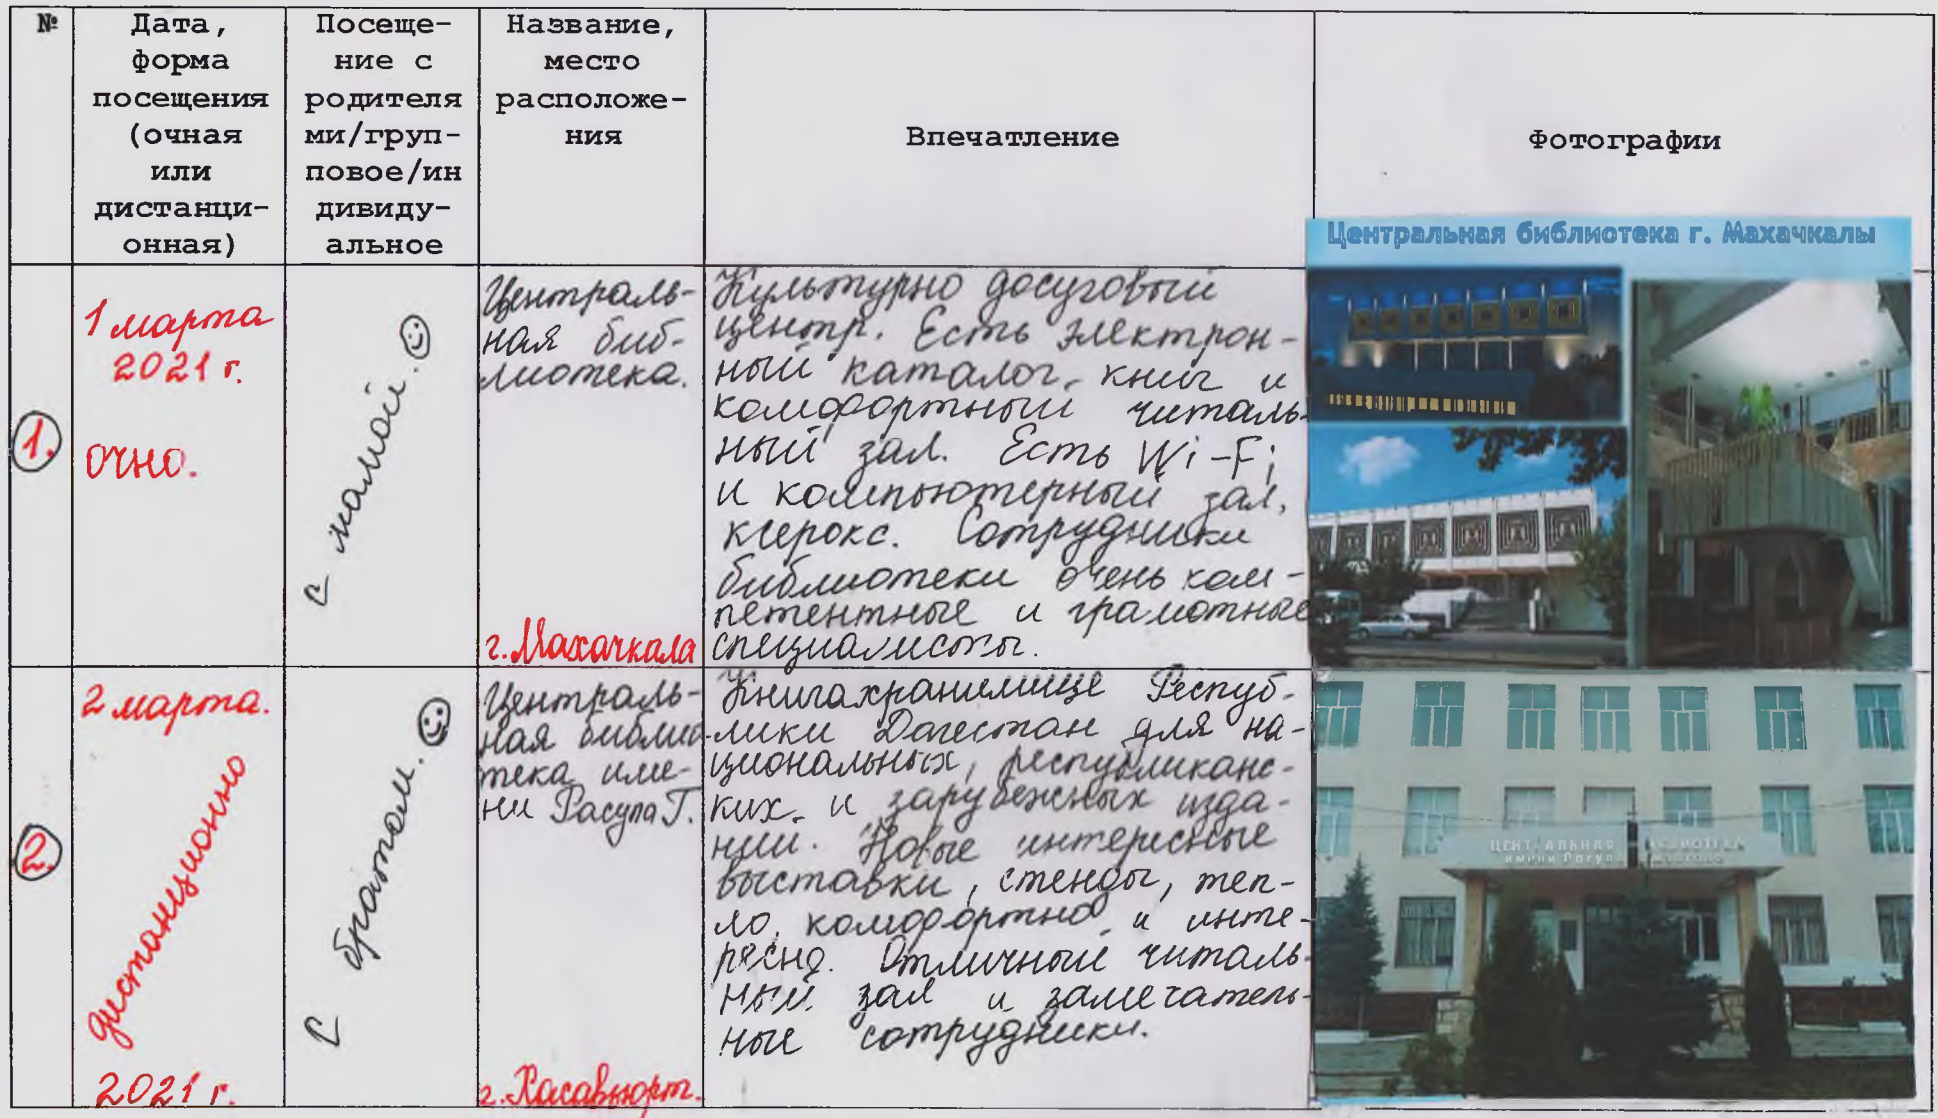 №
Дата,
форма
посещения
(очная
или
дистанци-
онная)
Посеще-
ние с
родителя
ми/груп-
повое/ин
дивиду-
альное
Название,
место
расположе-
ния
Впечатление
Фотографии
1.
1 марта
2021 г.
очно.
с мамой.
Централь-
ная биб-
лиотека.
г. Махачкала
Культурно досуговый
центр. Есть электрон-
ный каталог, книг и
комфортный читаль-
ный зал. Есть Wi-Fi
и компьютерный зал,
ксерокс. Сотрудники
библиотеки очень ком-
петентные и грамотные
специалисты.
Центральная библиотека г. Махачкалы
2.
2 марта.
дистанционно
2021 г.
с братом.
Централь-
ная библио-
тека име-
ни Расула Г.
г. Хасавюрт.
Книгахранилище Респуб-
лики Дагестан для на-
циональных, республиканс-
ких и зарубежных изда-
ний. Новые интересные
выставки, стенды, теп-
ло, комфортно и инте-
ресно. Отличный читаль-
ный зал и замечатель-
ные сотрудники.
имени Расул